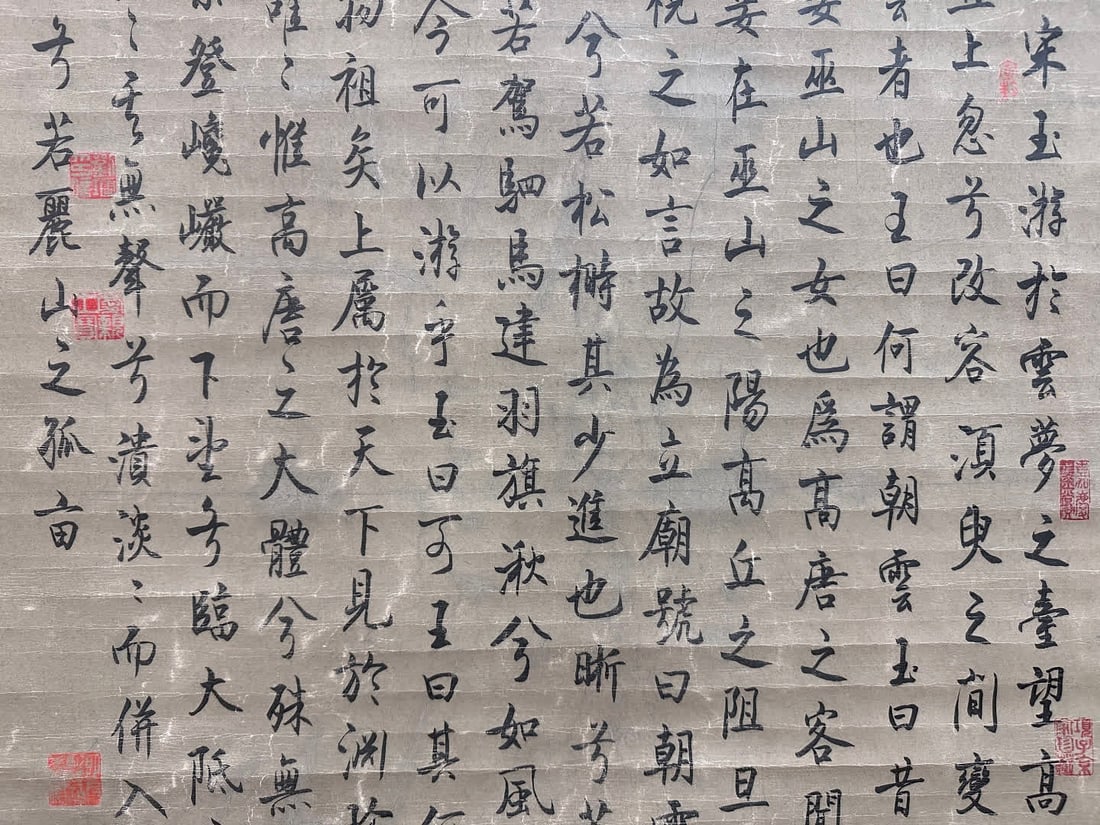 宋玉游於雲夢之臺望高
上忽兮改容湏臾之間變
者也玉曰何謂朝雲玉曰昔
妾巫山之女也爲高唐之客聞
妾在巫山之陽高丘之阻旦
視之如言故為立廟號曰朝雲
兮若松榯其少進也晰兮若
若駕駟馬建羽旗湫兮如風
今可以游乎玉曰可王曰其何
物祖矣上屬於天下見於淵
惟高唐〻之大體兮殊無
登巉巖而下望兮臨大阺
無聲兮潰淡〻而併入
兮若麗山之孤亩